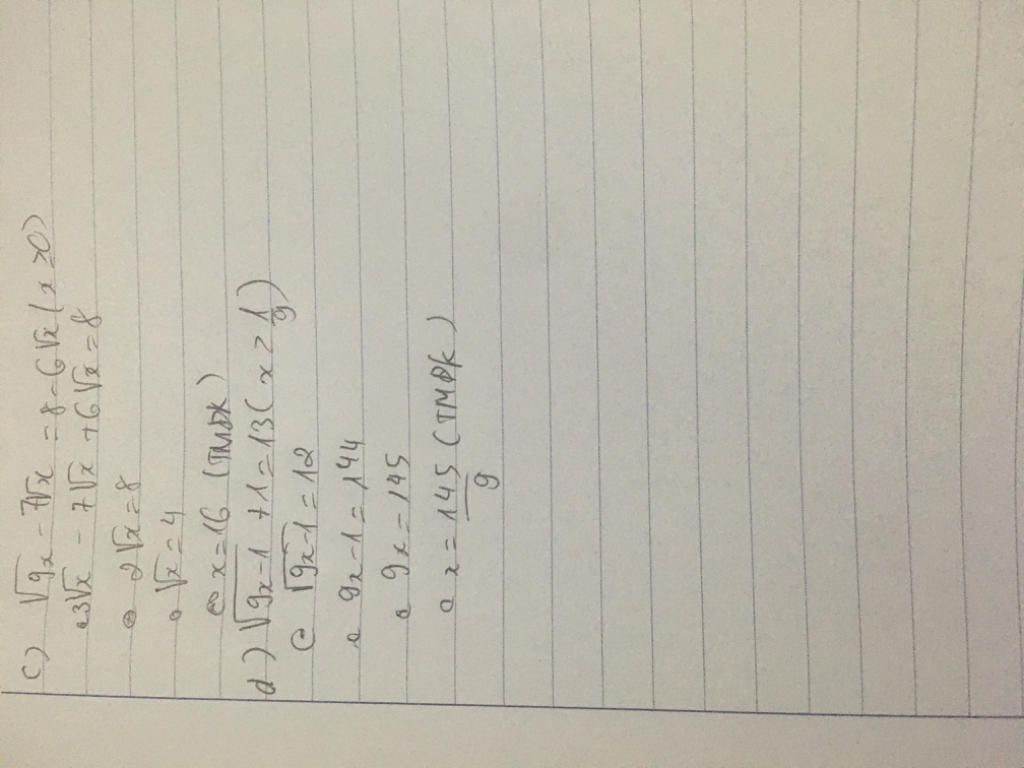 c) √9x - 7√x = 8 - 6√x (x ≥ 0)
⇔ 3√x - 7√x + 6√x = 8
⇔ 2√x = 8
⇔ √x = 4
⇔ x = 16 (TMĐK)
d) √9x-1 + 1 = 13 (x ≥ 1/9)
⇔ √9x-1 = 12
⇔ 9x-1 = 144
⇔ 9x = 145
⇔ x = 145/9 (TMĐK)